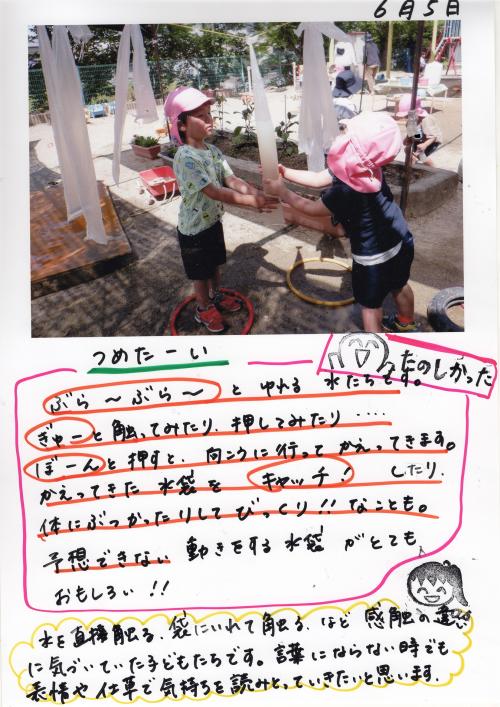 6月5日
つめたーい
たのしかった
ぶら〜ぶら〜 と ゆれる 水たちです。
ぎゅーと触ってみたり、押してみたり ‥‥
ぼーんと押すと、向こうに行って かえってきます。
かえってきた 水袋 を キャッチ! したり、
体にぶつかったりして びっくり!! なことも。
予想できない 動きをする 水袋 がとても
おもしろい !!
水を直接触る、袋にいれて触る、など 感触の違い
に気づいていた子どもたちです。言葉にならない時でも
表情や 仕草で気持ちを読みとっていきたいと思います。